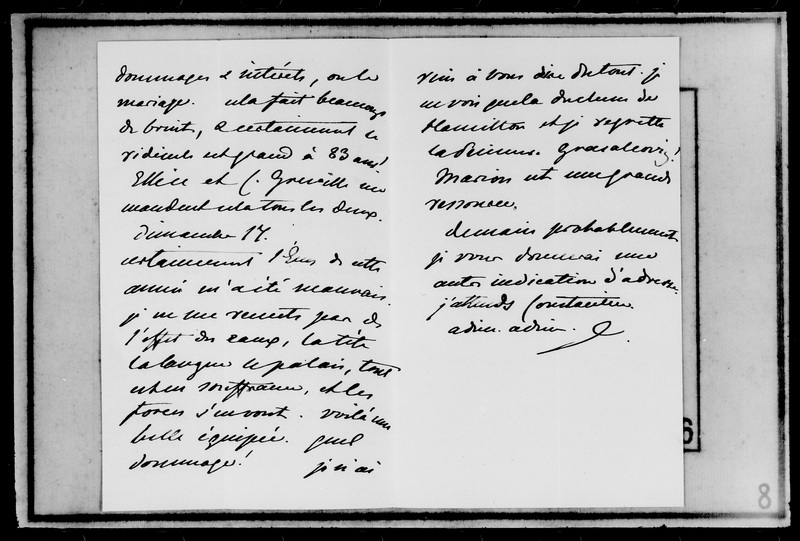 dommages & intérêts, ou le
mariage. cela fait beaucoup
de bruits, & certainement le
ridicule est grand à 83 ans!
Ellice et C. Greville me
mandent cela tous les deux.
Dimanche 17.
certainement l'Ems de cette
année m'a été mauvais.
je ne me remets pas de
l'effet des eaux, la tête
la langue le palais, tout
est en souffrance, et les
forces s'en vont. voilà une
belle équipée. quel
dommage! je n'ai
rien à vous dire du tout. je
ne vois que la duchesse de
Hamilton et je regrette
la Princesse Grasalcovy!
Marion est une grande
ressource.
demain probablement
je vous donnerai une
autre indication d'adresse.
j'attends Constantin.
adieu. adieu.
6
8